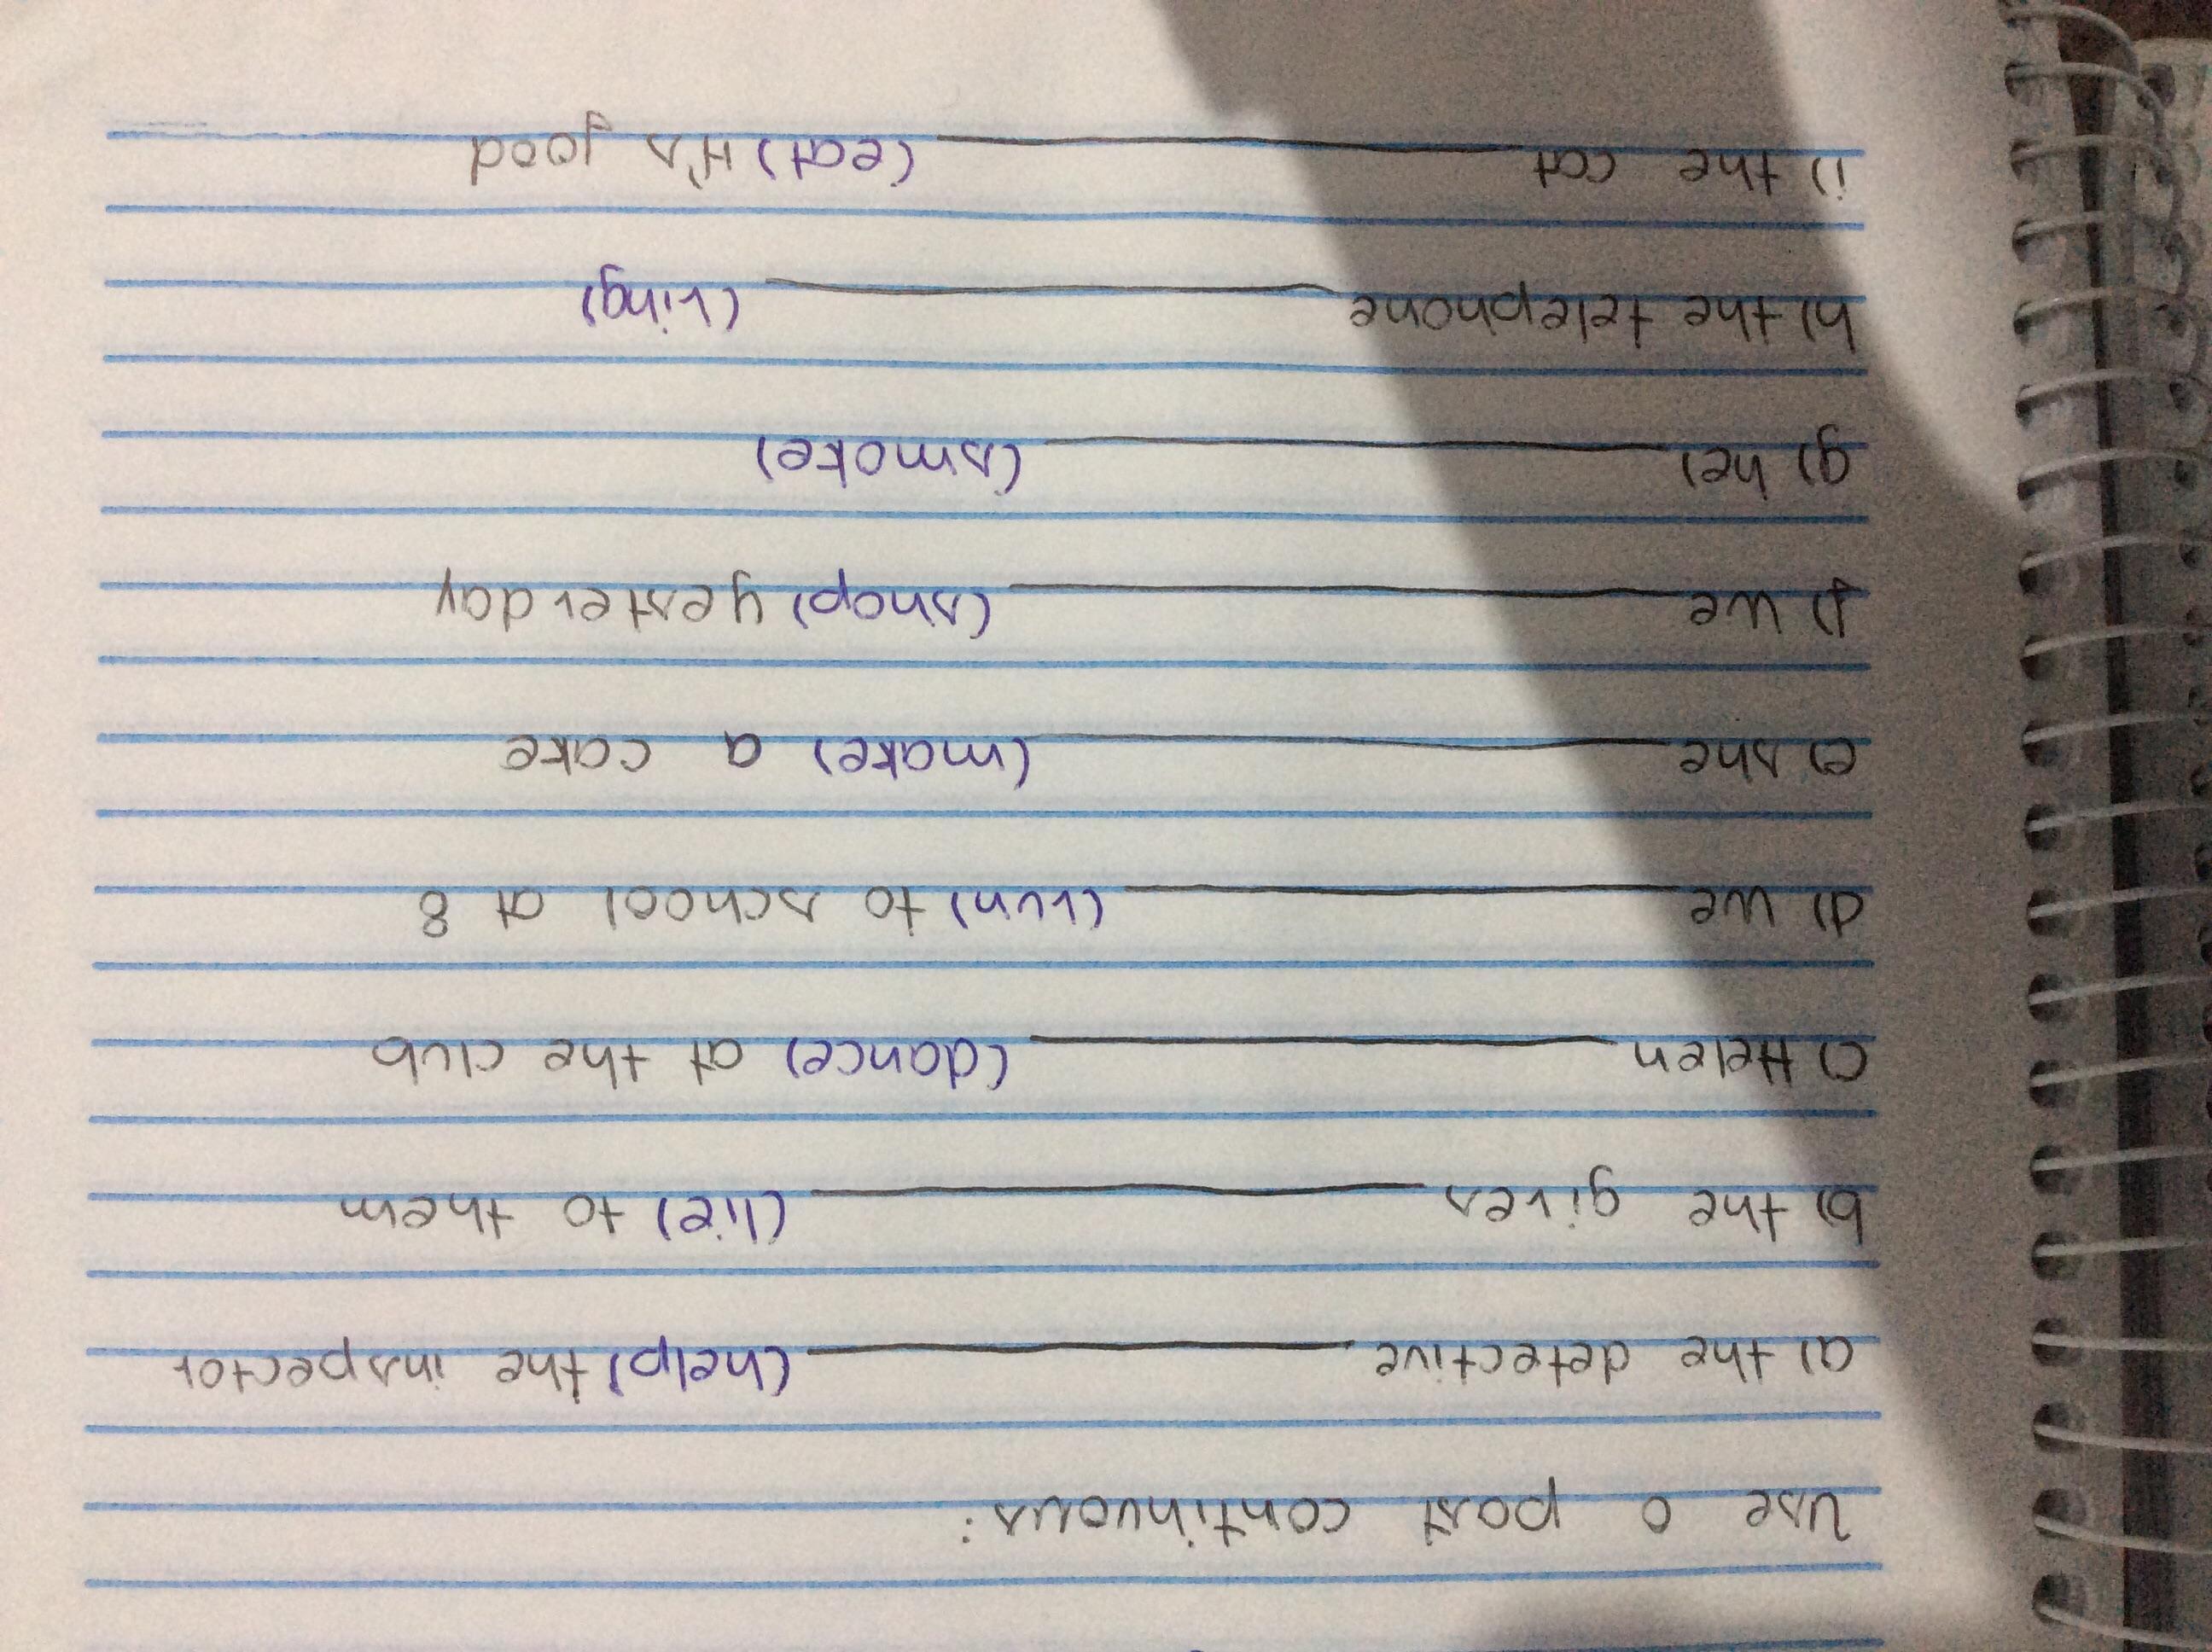 Use o past continuous:
a) the detective ________ (help) the inspector
b) the gires ________ (lie) to them
c) Helen ________ (dance) at the club
d) we ________ (run) to school at 8
e) she ________ (make) a cake
f) we ________ (shop) yesterday
g) he) ________ (smoke)
h) the telephone ________ (ring)
i) the cat ________ (eat) it's good